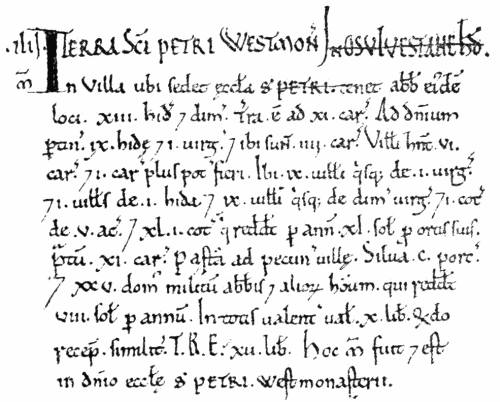 .iiij. TERRA SCI PETRI WESTMON̄ IN OSULVESTANE HD̄.
M̄ In Villa ubi sedet eccła S PETRI. tenet abb̄ eiđē
loci. xiii. hid̄ ⁊ dim̄. Tr̄a. ē ad xi. car̄. Ad dn̄ium
ptin̄. ix. hide ⁊ i. virg̃. ⁊ ibi sun̄. iiii. car̄. Vilłi hn̄t. vi.
car̄. ⁊ i. car̄ plus pot̄ fieri. Ibi. ix. uilłi q̇sq; de. i. virg̃.
⁊ i. uilłs de. i. hida ⁊ ix. uilłi q̇sq; de dim̄ virg̃. ⁊ i. cot̄
de. v. ac̄. ⁊ xl. i. cot̄ q̇ redd̄t p ann̄. xl. soł. p ortis suis.
p̃tū. xi. car̄. Pasťa ad pecun̄ uille. Silua. c. porc̄.
⁊ xxv. dom̄ militum abbis ⁊ alioꝝ hōum. qui redd̄t
viii. soł p annum. In totis ualent̄ uał. x. lib̄. &do
recep̄. similit̄. T.R.E.̄ xii. lib̄. Hoc m̄ fuit ⁊ est
in dn̄io eccłę S PETRI. westmonasterii.